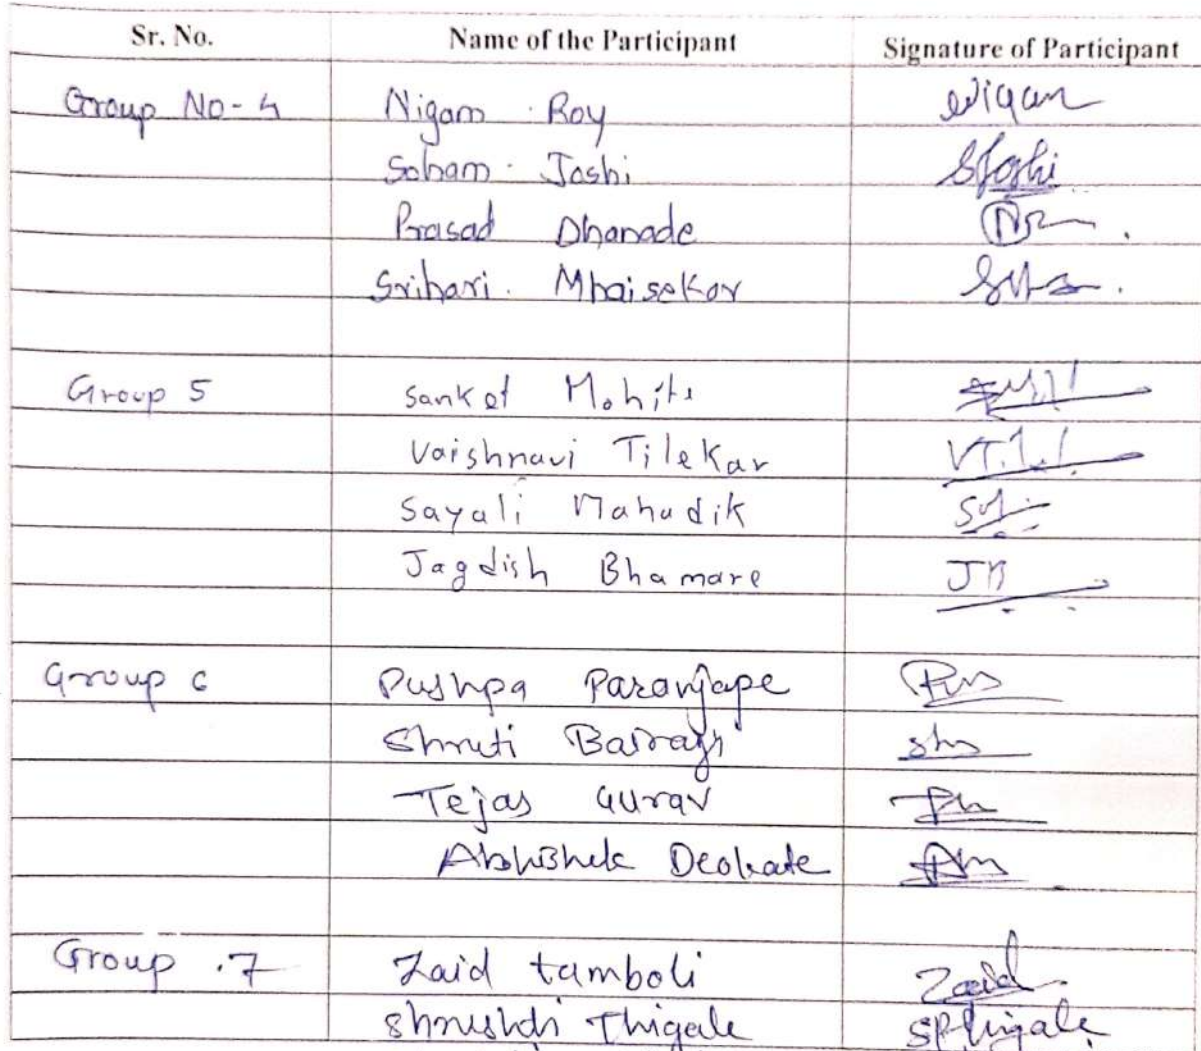 Sr. No. Name of the Participant Signature of Participant
Group No-4 Nigam Roy Nigam
Soham Joshi SJoshi
Prasad Dhanade
Srihari Mhaisekar
Group 5 Sanket Mohite
Vaishnavi Tilekar
Sayali Mahadik
Jagdish Bhamare JB
Group 6 Pushpa Paranjape
Shruti Bairagi
Tejas Gurav
Abhishek Deokate
Group .7 Zaid tamboli Zaid
Shrushti Thigale SPthigale